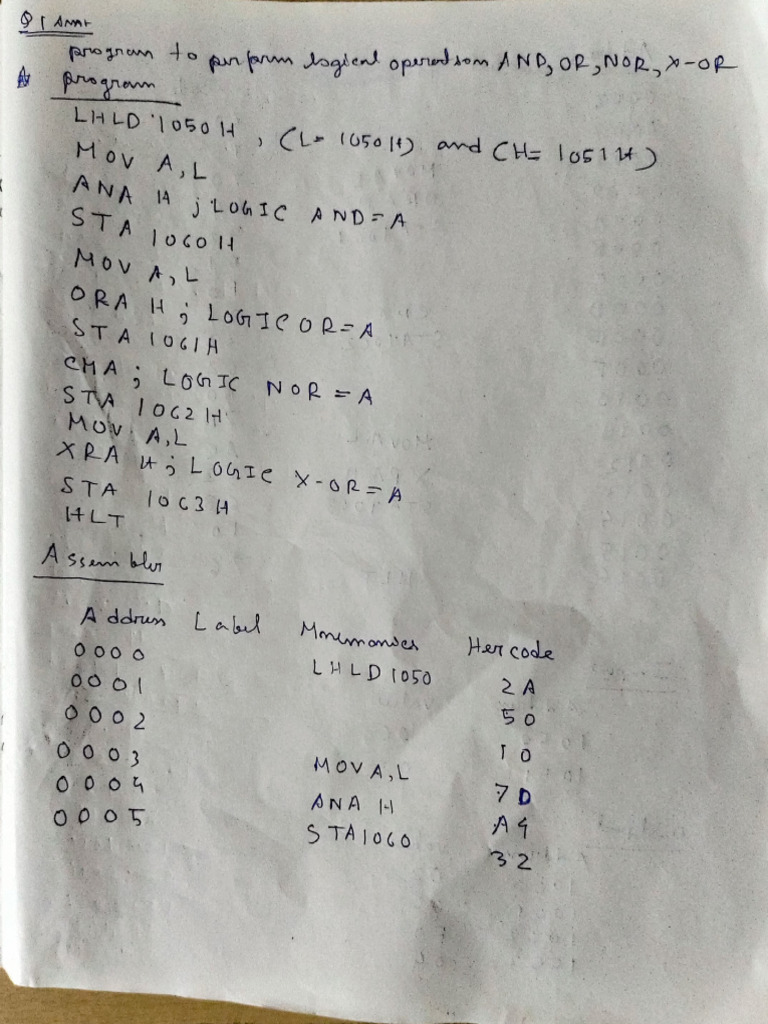 Q 1 Ans
program to perform logical operation AND, OR, NOR, X-OR
program
LHLD 1050 H , (L= 1050 H) and (H= 1051 H)
MOV A, L
ANA H ; LOGIC AND = A
STA 1060 H
MOV A, L
ORA H ; LOGIC OR = A
STA 1061 H
CMA ; LOGIC NOR = A
STA 1062 H
MOV A, L
XRA H ; LOGIC X-OR = A
STA 1063 H
HLT
Assembler
Address Label Mnemonics Hex code
0000 LHLD 1050 2A
0001 50
0002 10
0003 MOV A, L 7D
0004 ANA H A4
0005 STA 1060 32